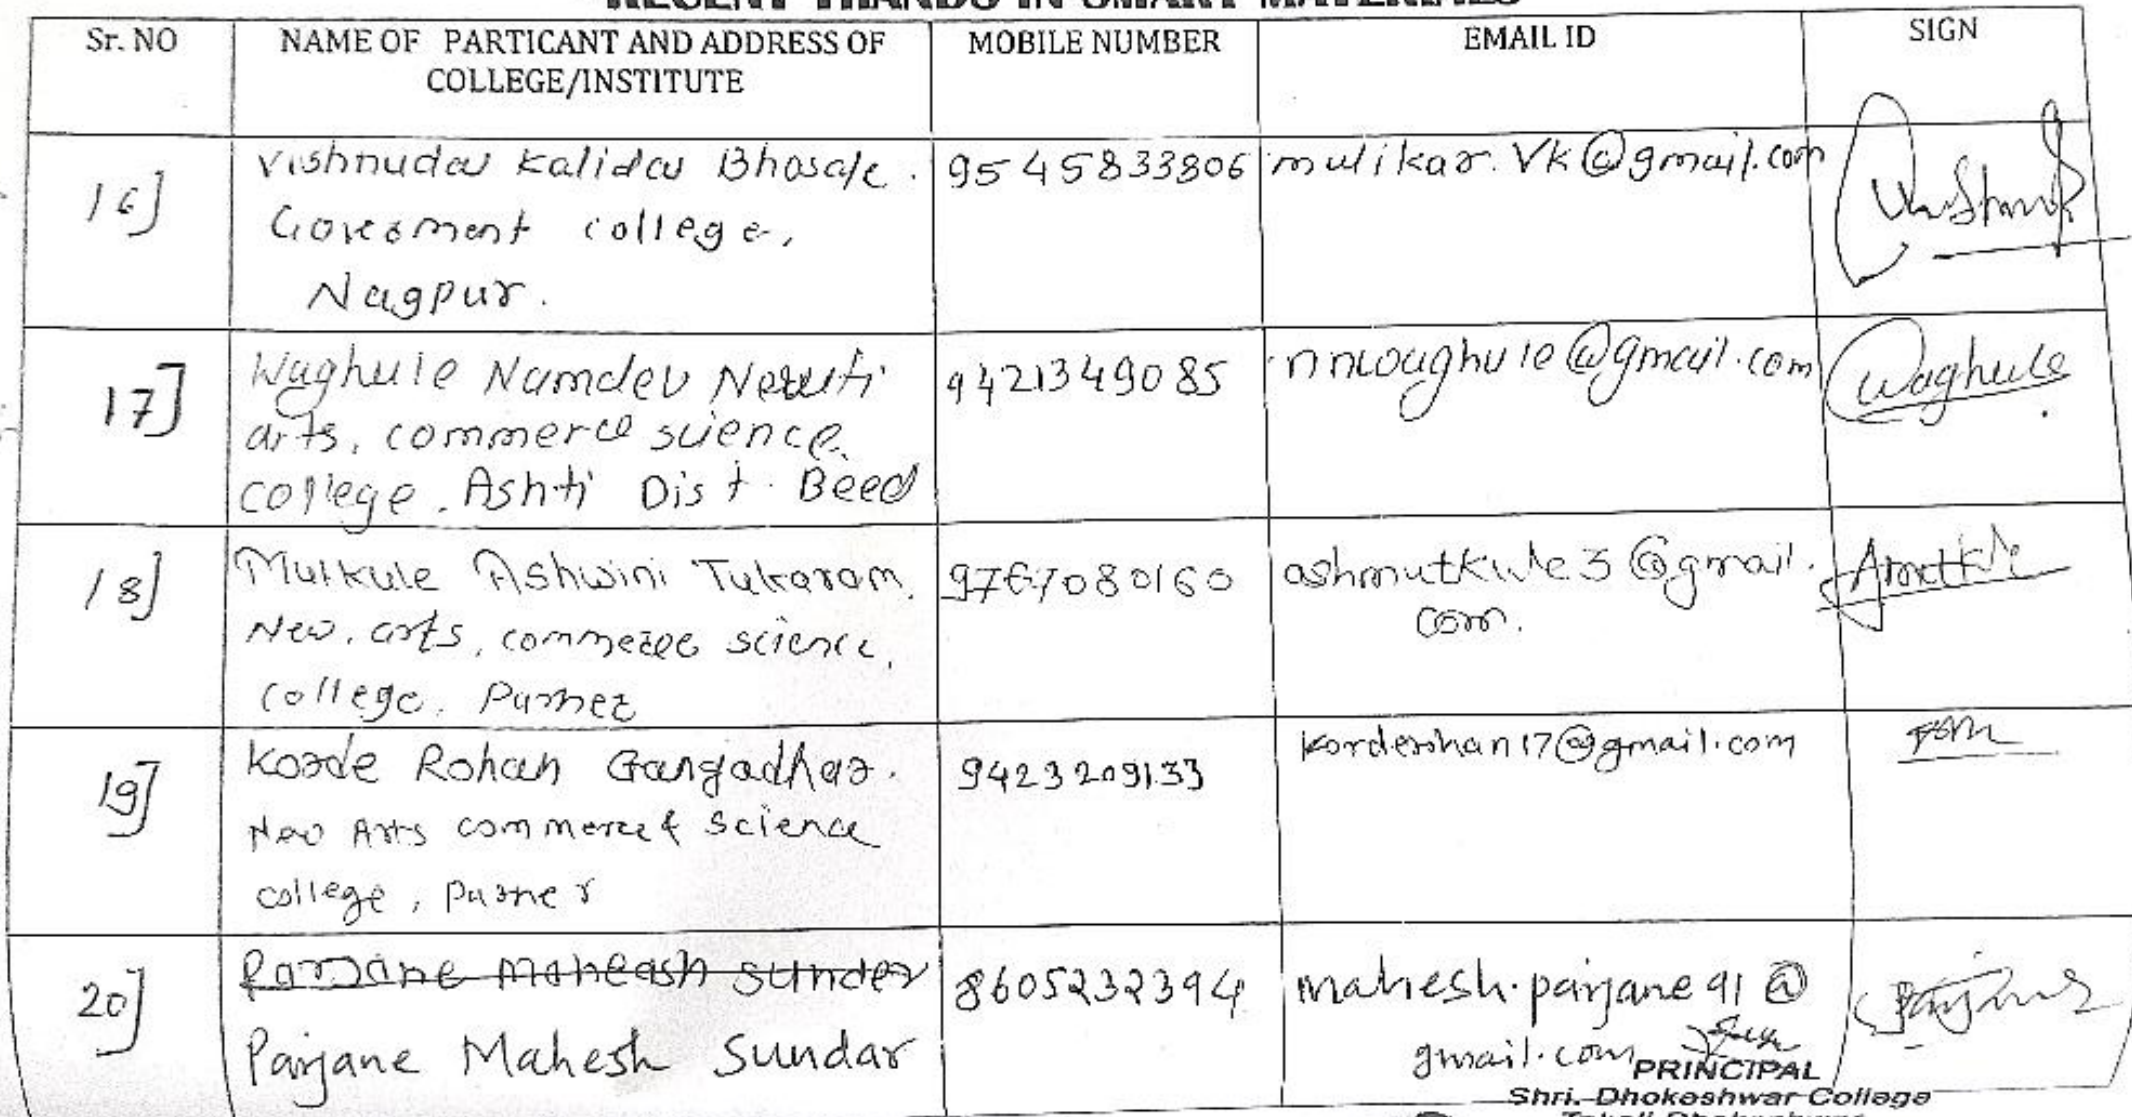 RECENT TRANDS IN SMART MATERIALS
Sr. NO
NAME OF PARTICANT AND ADDRESS OF
COLLEGE/INSTITUTE
MOBILE NUMBER
EMAIL ID
SIGN
16]
Vishnudas Kalidas Bhosale.
Goverment college,
Nagpur.
9545833806
mulikar.vk@gmail.com
17]
Waghule Namdev
arts, commerce science
college. Ashti Dist. Beed
9421349085
nnwaghule@gmail.com
Waghule
18]
Mutkule Ashwini Tukaram
New. arts, commerce science,
college. Parner
9767080160
ashmutkule3@gmail.
com.
19]
Korde Rohan Gangadhar.
New Arts commerce & Science
college, Parner
9423209133
20]
Parjane Maheash sunder
Parjane Mahesh Sundar
8605232394
mahesh.parjane91@
gmail.com
Parjane
PRINCIPAL
Shri. Dhokeshwar College